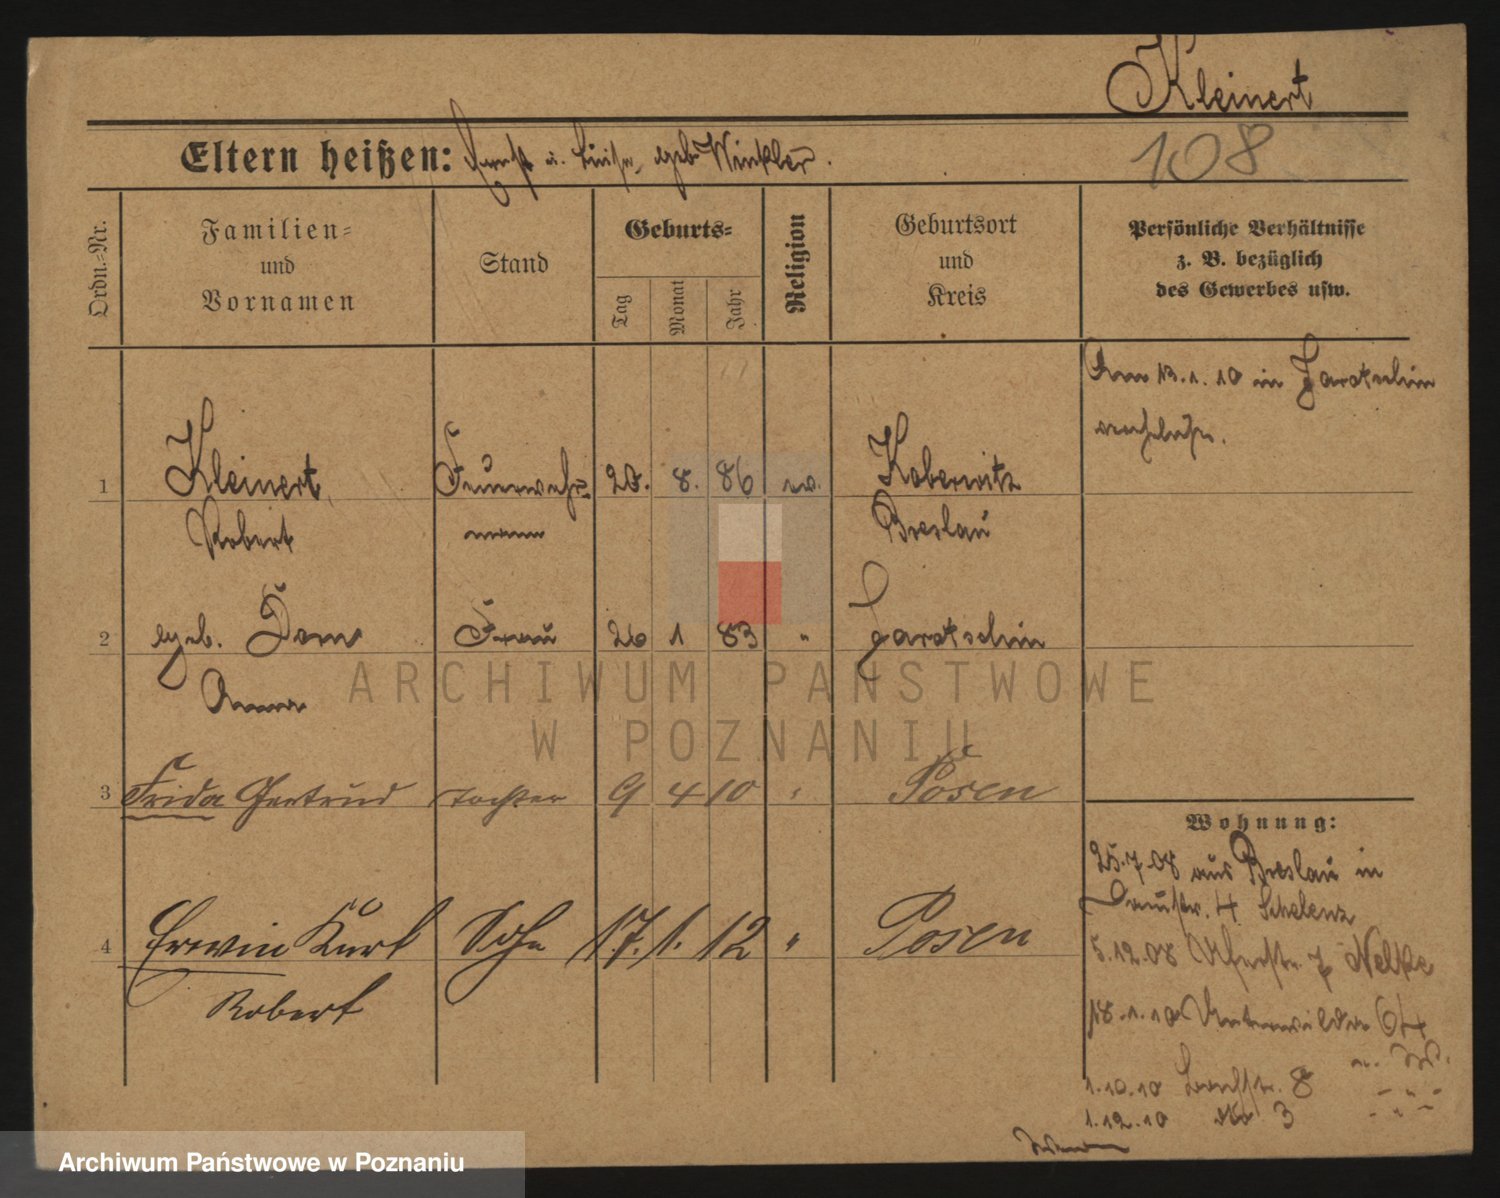 Kleinert
108
Eltern heißen: Ernst u. Luise, geb. Winkler.
Ordn.-Nr.
Familien-
und
Vornamen
Stand
Geburts-
Tag
Monat
Jahr
Religion
Geburtsort
und
Kreis
Persönliche Verhältnisse
z. B. bezüglich
des Gewerbes usw.
Am 13.1.10 in Jarotschin
1 Kleinert, Feuerwehr- 20. 8. 86 ev. Koberwitz
Robert mann Breslau
2 geb. Frau 26 1 83 " Jarotschin
Anna
3 Frida Gertrud Tochter 9 4 10 " Posen
Wohnung:
25.7.08 aus Breslau in
4 Schelenz
4 Erwin Kurt Sohn 17. 1. 12 " Posen
Robert
5.12.08 7 Nelke
18.1.10 Unterwilda 64
u. W.
1.10.10 8
1.12.10 do 3
ARCHIWUM PAŃSTWOWE
W POZNANIU
Archiwum Państwowe w Poznaniu